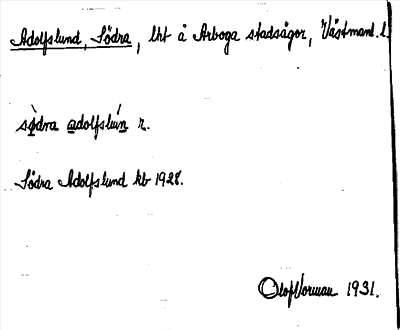 Adolfslund, Södra, lht å Arboga stadsägor, Västmanl. l.
sò̤dra a̲dolfsluń̲ r.
Södra Adolfslund kb 1928.
Olof Vorman 1931.